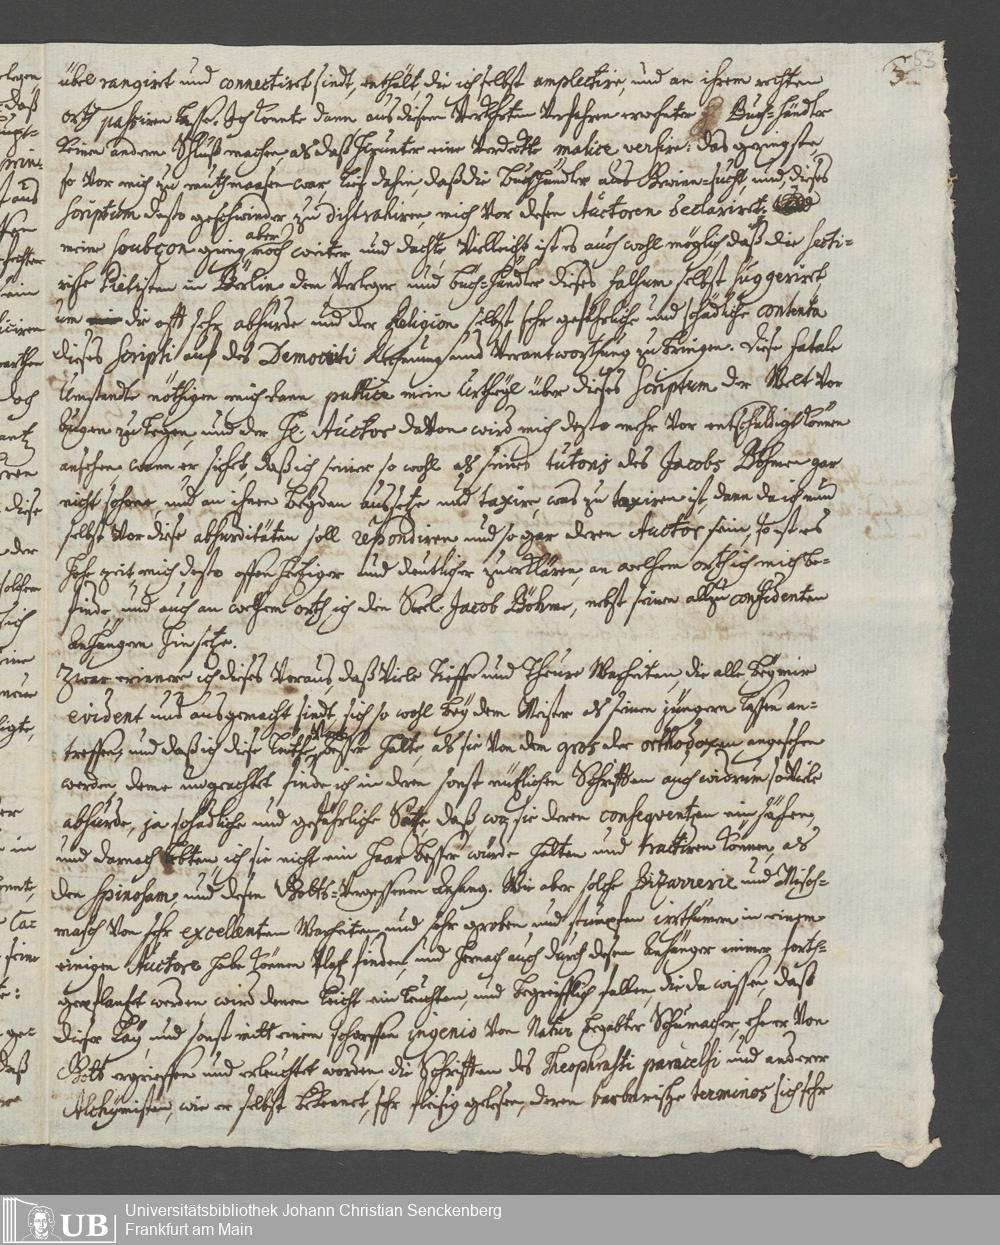 53
3
übel rangiret und connectiret sindt, enthält, die ich selbst amplectire, und an ihrem rechten
orth passiren lasse. Ich konte dann aus diesem Verkehrten Verfahren erwehnter Buch-händler
keinen andern Schluß machen als daß hierunter eine Verdekte malice versire: das geringste,
so vor mich zu muthmaasen war lief dahin, daß die Buchhändler aus Gewien-sucht, und dieses
scriptum desto geschwinder zu distrahiren, mich vor desen Auctoren declariret:
meine soubçon ging aber noch weiter und dachte Vielleicht ist es auch wohl möglich daß die secti-
rische Pietisten in Berlin dem Verleger und buch-händler dieses falsum selbst suggeriret
um die offt sehr absurde und der Religion selbst sehr gefährliche und schädliche contenta
dieses scripti auf des Democriti Rechnung und Verantworthung zu bringen. Diese fatale
Umstände nöthigen mich dann publice mein Urtheyl über dieses scriptum der Welt vor
Augen zu legen, und der H. Auctor davon wird mich desto mehr vor entschuldigt können
ansehen wann er siehet, daß ich seiner so wohl als seines tutoris des Jacobs Böhmen gar
nicht schone, und an ihnen beyden aussetze und taxire, was zu taxiren ist, dann da ich nun
selbst vor diese absurditäten soll respondiren und so gar deren Auctor sein, so ist es
hohe zeit, mich desto offenhertziger und deutlicher zu erklären, an welchem orth ich mich be-
finde, und auch an welchem orth ich den Seel. Jacob Böhme, nebst seinen allzu confidenten
Anhängern hin setze.
Zwar erinnere ich dieses Voraus, daß Viele Tieffe und Theure Warheiten, die alle bey mir
evident und ausgemacht sindt, sich so wohl bey dem Meister als seinen jüngern lassen an-
treffen, und daß ich diese leuthe besser halte, als sie von dem gros der orthodoxen angesehen
werden, deme ungeachtet finde ich in deren sonst nützlichen Schrifften auch widerum so viele
absurde, ja schädliche und gefährliche Sätze, daß wo sie deren consequentzen einsähen,
und darnach lebten, ich sie nicht ein haar besser würde halten und tractiren können, als
den Spinosam, und desen Gotts-Vergessenen Anhang. Wie aber solche bizarrerie und Misch-
masch von sehr excellenten Warheiten, und sehr groben und stumpfen irrthümern in einem
einigen Auctore habe können Platz finden, und hernach auch durch desen Anhänger immer forth-
gepflantzt werden wird denen leicht einleuchten, und begreifflich fallen, die da wissen, daß
dieser Lay, und sonst mitt einem scharffen ingenio von Natur begabter Schumacher, eher er von
Gott ergriffen und erleuchtet worden, die Schrifften des Theophrasti paracelsi und anderer
Alchymisten, wie er selbst bekennet, sehr fleisig gelesen, deren barbarische terminos sich sehr
UB
Universitätsbibliothek Johann Christian Senckenberg
Frankfurt am Main